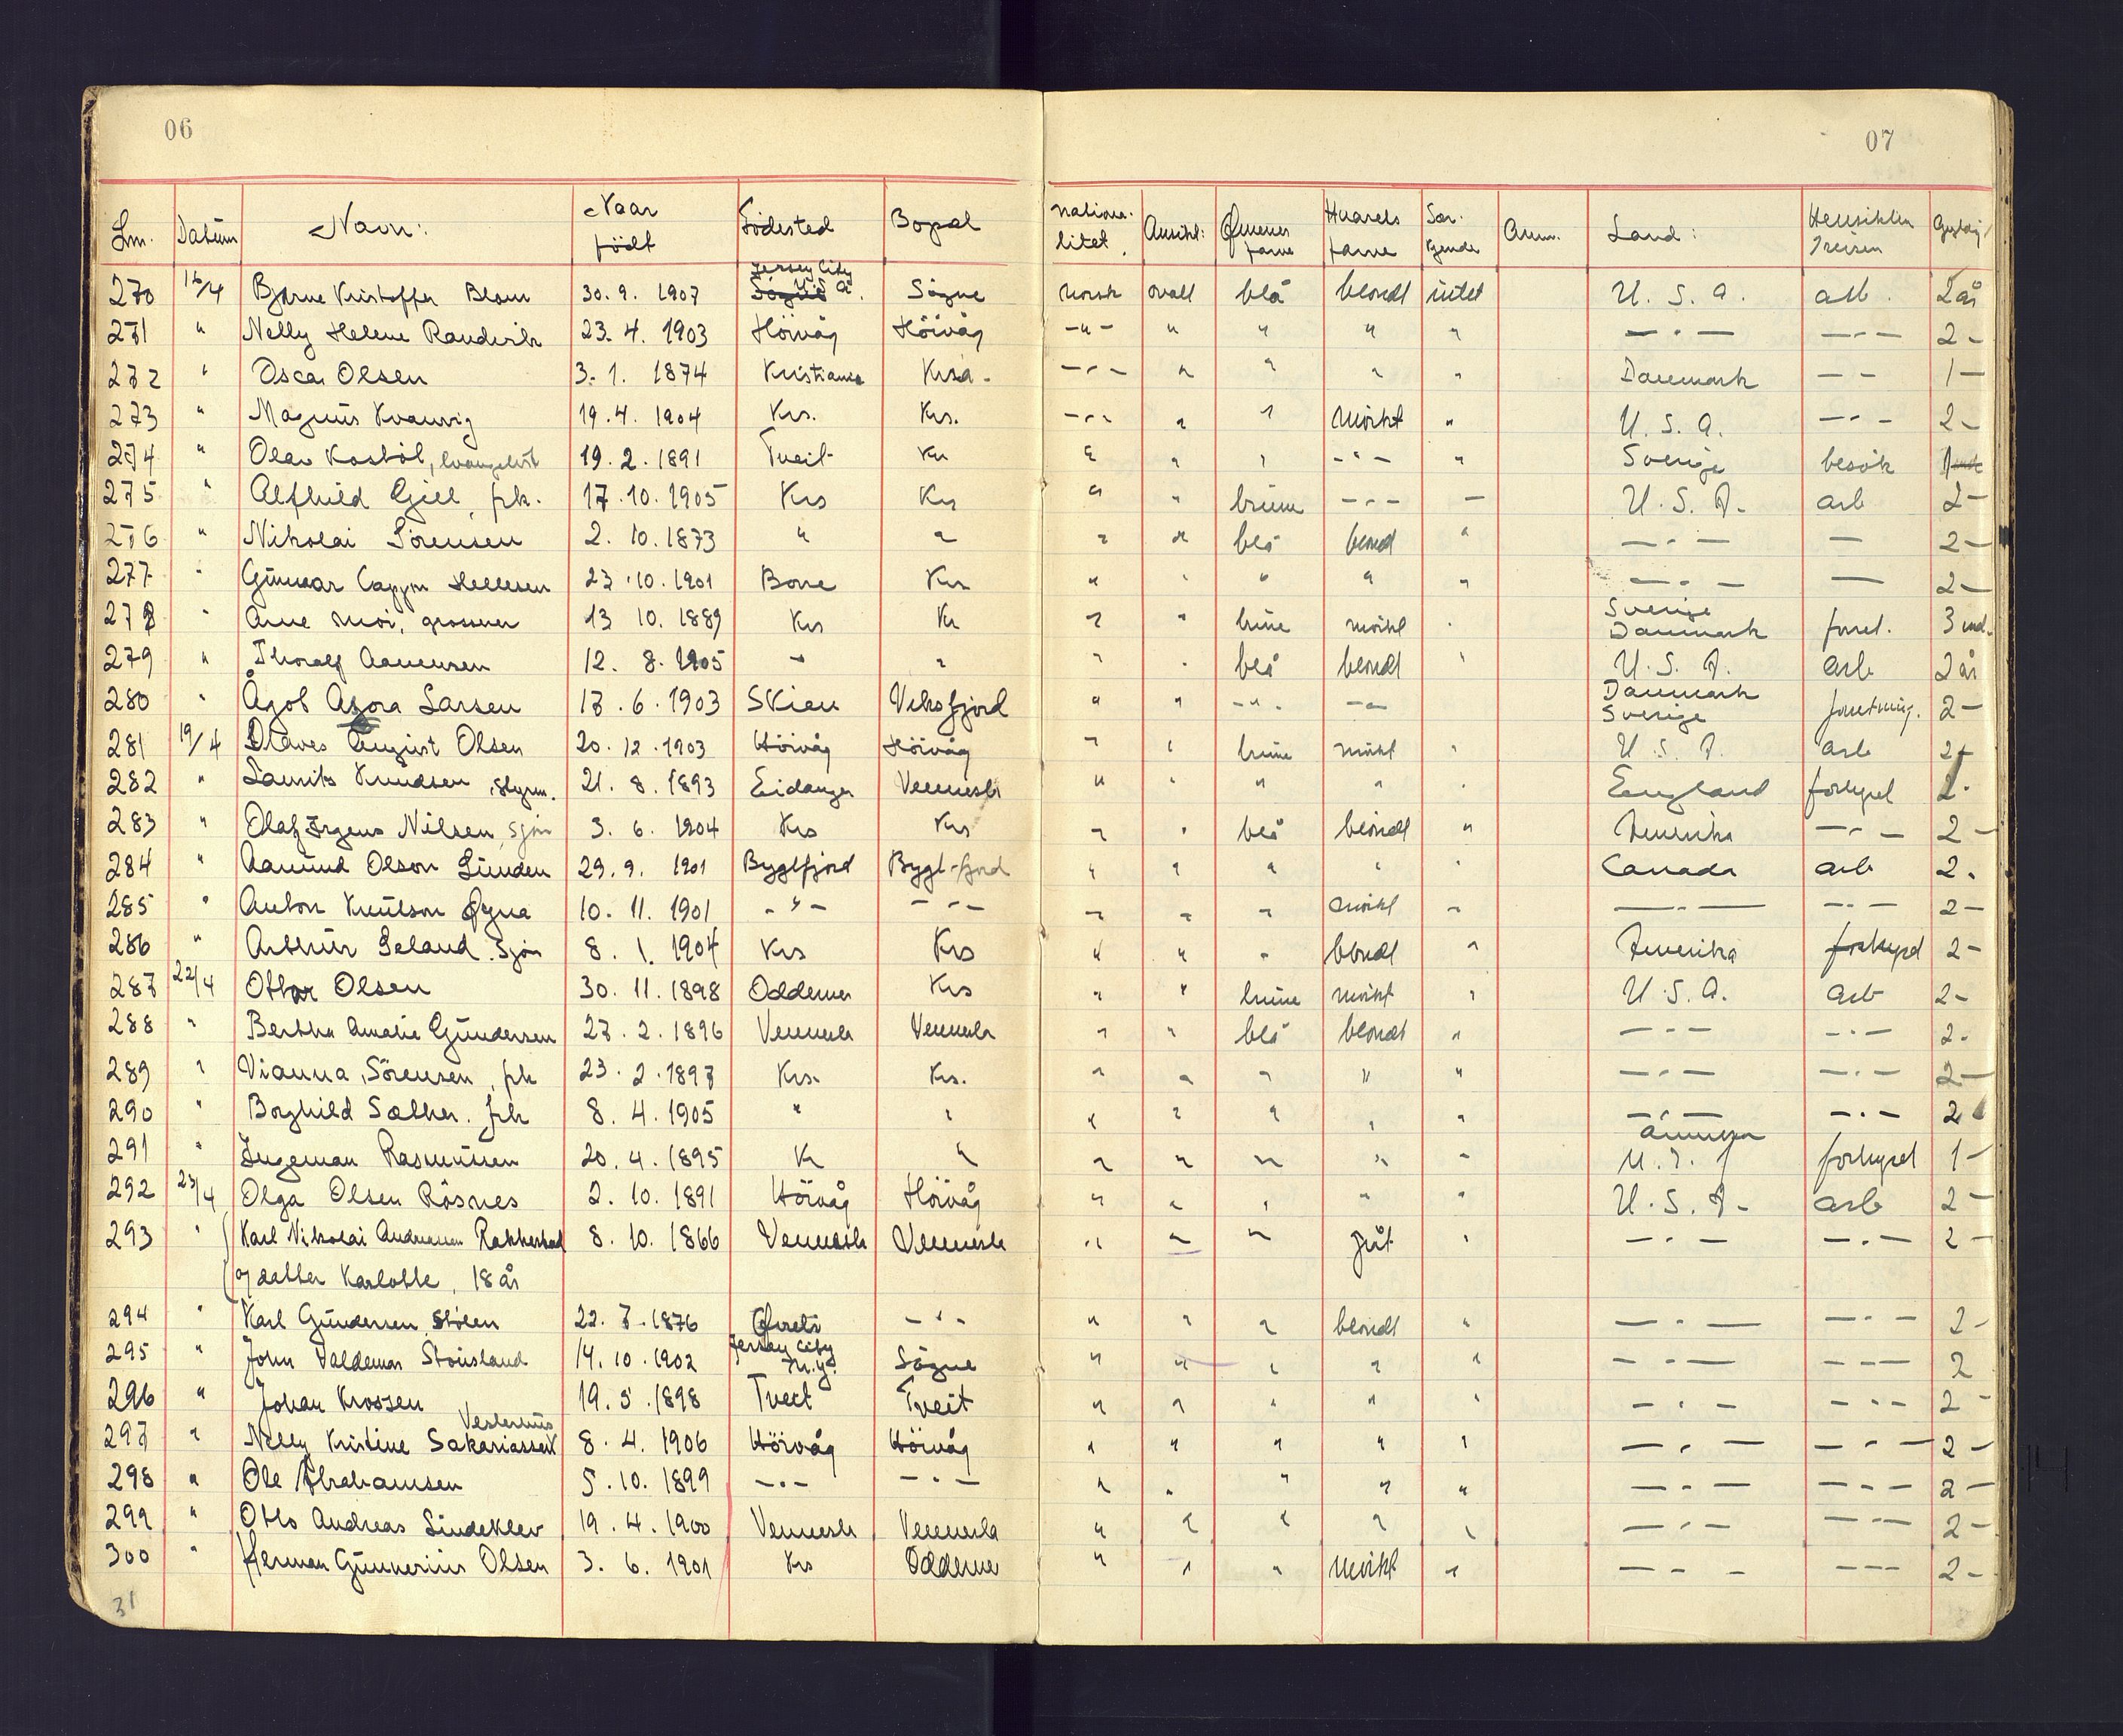 06
07
Lnr. Datum Navn: Naar född Födested Bopæl Nationalitet. Ansikt: Öinenes farve Haarets farve Sær-kjende Anm. Land: Hensikten m/reisen Gyldig
270 16/4 Bjarne Kristoffer Blom 30.9.1907 Jersey City U.S.A. Søgne norsk ovalt blå blondt intet U.S.A. arb. 2 år
271 " Nelly Helene Randvik 23.4.1903 Höivåg Höivåg -"- " " " " —"— —"— 2-
272 " Oscar Olsen 3.1.1874 Kristiania Krsa. -"- " " " " Danmark — — 1-
273 " Magnus Kvanvig 19.4.1904 Krs. Krs. -"- " " mörkt " U.S.A. —"— 2-
274 " Olav Kostöl, evangelist 19.2.1891 Tveit Kr " " " -"- " Sverige besök
275 " Alfhild Gjell, frk. 17.10.1905 Krs Krs " " brune -"- — U.S.A. arb 2-
276 " Nikolai Sörensen 2.10.1873 " " " " blå blond " —"— — 2-
277 " Gunnar Cappn Hellesen 23.10.1901 Krs " " " " " —"— — 2-
278 " Arne Moi, grosserer 13 10.1889 Krs Kr " " brune mörkt " Sverige Danmark forret. 3 md.
279 " Thoralf Aanensen 12.8.1905 " " " " blå blondt " U.S.A. arb 2 år
280 " Ågot Asora Larsen 17.6.1903 Skien Viksfjord " " -"- -"- Danmark Sverige forretning. 2-
281 19/4 August Olsen 20.12.1903 Höivåg Höivåg " " brune mörkt " U.S.A. arb 2-
282 " Laurits Knudsen, styrm. 21.8.1893 Eidanger Vennesla " " " " " England forhyret 2-
283 " Olaf Jrgens Nilsen, sjöm 3.6.1904 Krs Krs " " blå blondt " Amerika —"— 2-
284 " Aanund Olson Lunden 29.9.1901 Byglfjord Bygl-fjord " " " " " Canada arb 2.
285 " Anton Knutson Öyna 10.11.1901 -"- -"- " " " mörkt " —"— —"— 2-
286 " Arthur Leland. Sjöm 8.1.1904 Krs Krs " " " blondt " Amerika forhyred 2-
287 22/4 Ottar Olsen 30.11.1898 Oddernes Krs " " brune mörkt " U.S.A. arb 2-
288 " Bertha Amalie Gundersen 27.2.1896 Vennesla Vennesla " " blå blondt " —"— —"— 2-
289 " Vianna Sörensen, frk 23.2.1897 Krs. Krs. " " " " " —"— —"— 2-
290 " Borghild Sæther. frk 8.4.1905 " " " " " " " —"— —"— 2
291 " Ingeman Rasmussen 20.4.1895 Kr " " " " " " forhyret 1-
292 23/4 Olga Olsen Rösnes 2.10.1891 Höivåg Höivåg " " " " " U.S.A. arb 2-
293 " Karl Nikolai Andreassen Rakkestad 8.10.1866 Vennesla Vennesla " " " gråt " —"— —"— 2-
og datter Karlotte, 18 år
294 " Karl Gundersen Stölen 22.7.1876 -"- " " " blondt " —"— —"— 2-
295 " John Valdemar Stousland 14.10.1902 Jersey City N.Y. Sögne " " " " " —"— —"— 2
296 " Johan Krossen 19.5.1898 Tveit Tveit " " " " " —"— —"— 2-
297 " Nelly Kristine Sakariassen Vesterhus 8.4.1906 Höivåg Höivåg " " " " " —"— —"— 2-
298 " Ole Abrahamsen 5.10.1899 -"- -"- " " " " " —"— —"— 2-
299 " Otto Andreas Lindeklev 19.4.1900 Vennesla Vennesla " " " " " —"— —"— 2-
300 " Herman Gunnerius Olsen 3.6.1901 Krs Oddernes " " " mörkt " —"— —"— 2-
31